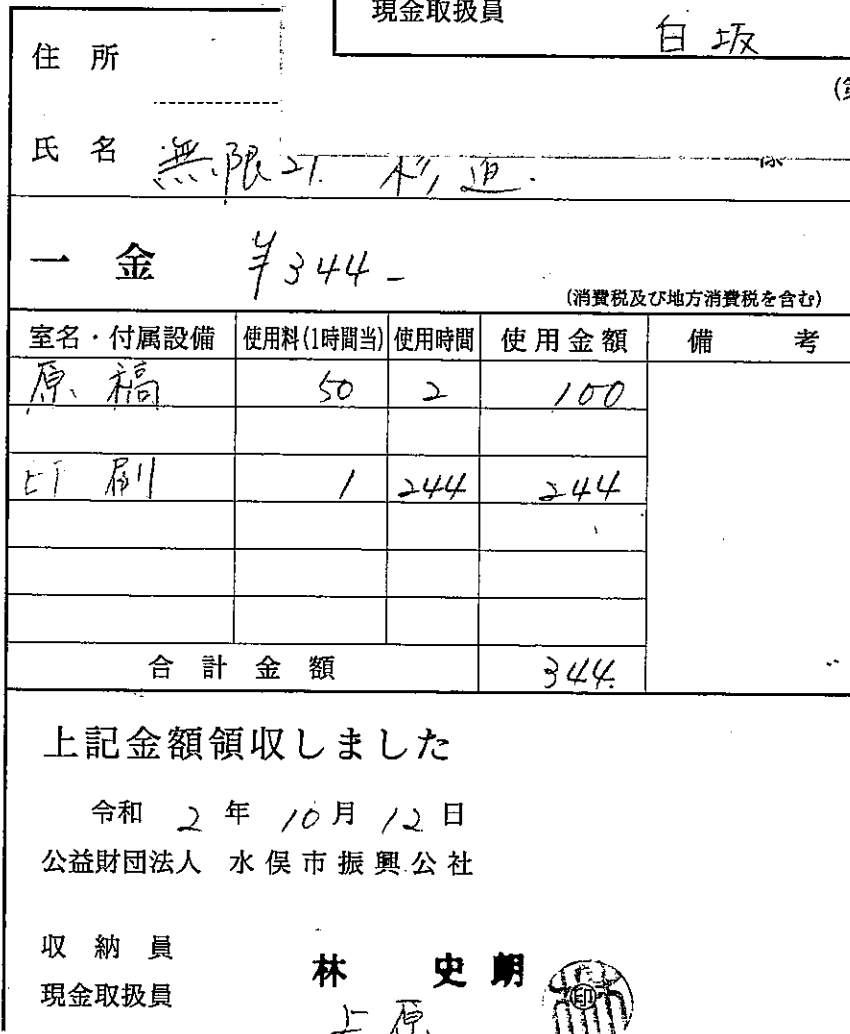 現金取扱員
白坂
住所
氏名 無限21. 杉迫. 様
一金 ¥344-
(消費税及び地方消費税を含む)
室名・付属設備 使用料(1時間当) 使用時間 使用金額 備考
原稿 50 2 100
印刷 1 244 244
合計金額 344.
上記金額領収しました
令和 2年 10月 12日
公益財団法人 水俣市振興公社
収納員
林 史朗 印
現金取扱員
上原